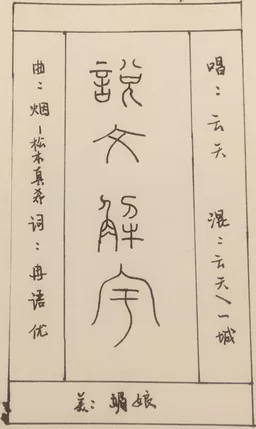 唱：云天 混：云天、一城
说文解字
曲：烟-松本真希 词：冉语优
美：媚娘